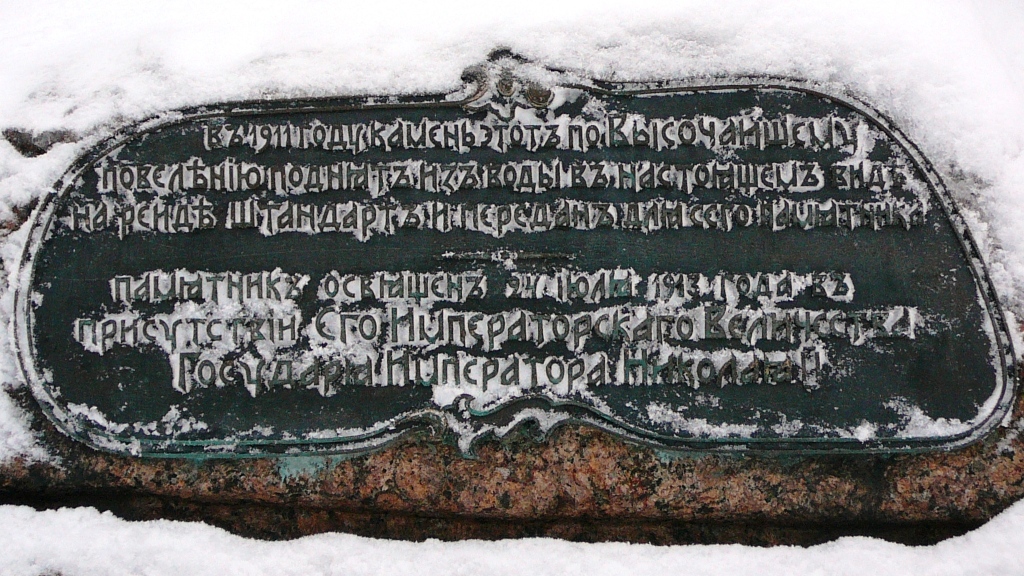 Въ 1911 году камень этотъ по Высочайшему
повелѣнію поднятъ изъ воды въ настоящемъ видѣ
на рейдѣ Штандартъ и переданъ для сего памятника
Памятникъ освященъ 24 Іюля 1913 года въ
присутствіи Его Императорскаго Величества
Государя Императора Николая II